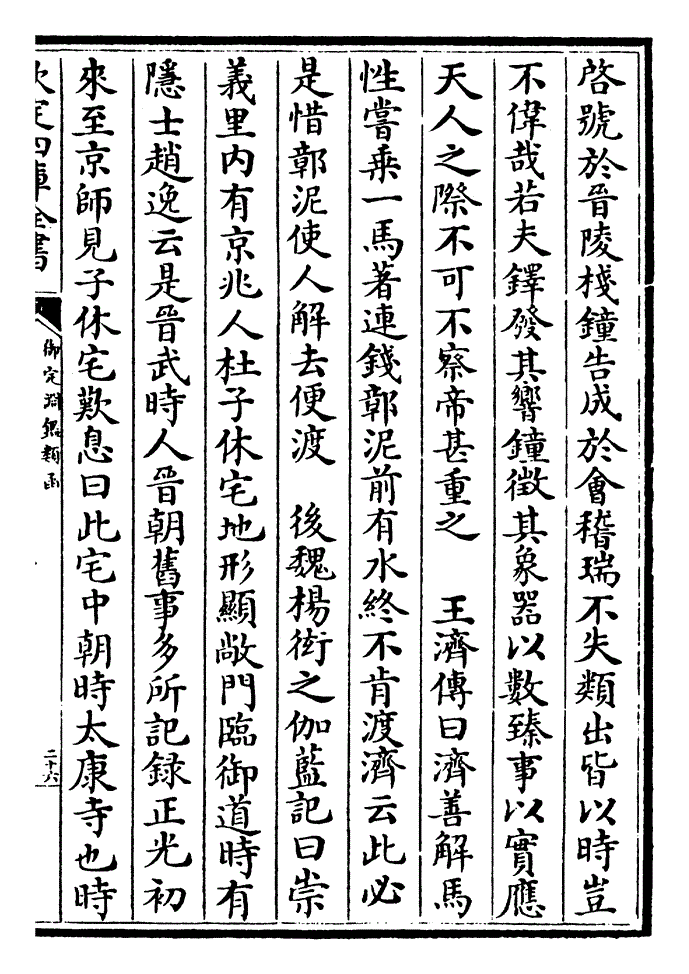 啓號於晉陵棧鐘告成於㑹稽瑞不失類出皆以時豈
不偉哉若夫鐸發其響鐘徵其象器以數臻事以實應
天人之際不可不察帝甚重之　王濟傳曰濟善解馬
性嘗乗一馬著連錢鄣泥前有水終不肯渡濟云此必
是惜鄣泥使人解去便渡　後魏楊衒之伽藍記曰崇
義里内有京兆人杜子休宅地形顯敞門臨御道時有
隱士趙逸云是晉武時人晉朝舊事多所記録正光初
來至京師見子休宅歎息曰此宅中朝時太康寺也時
欽定四庫全書
御定淵鑑類函
二十六